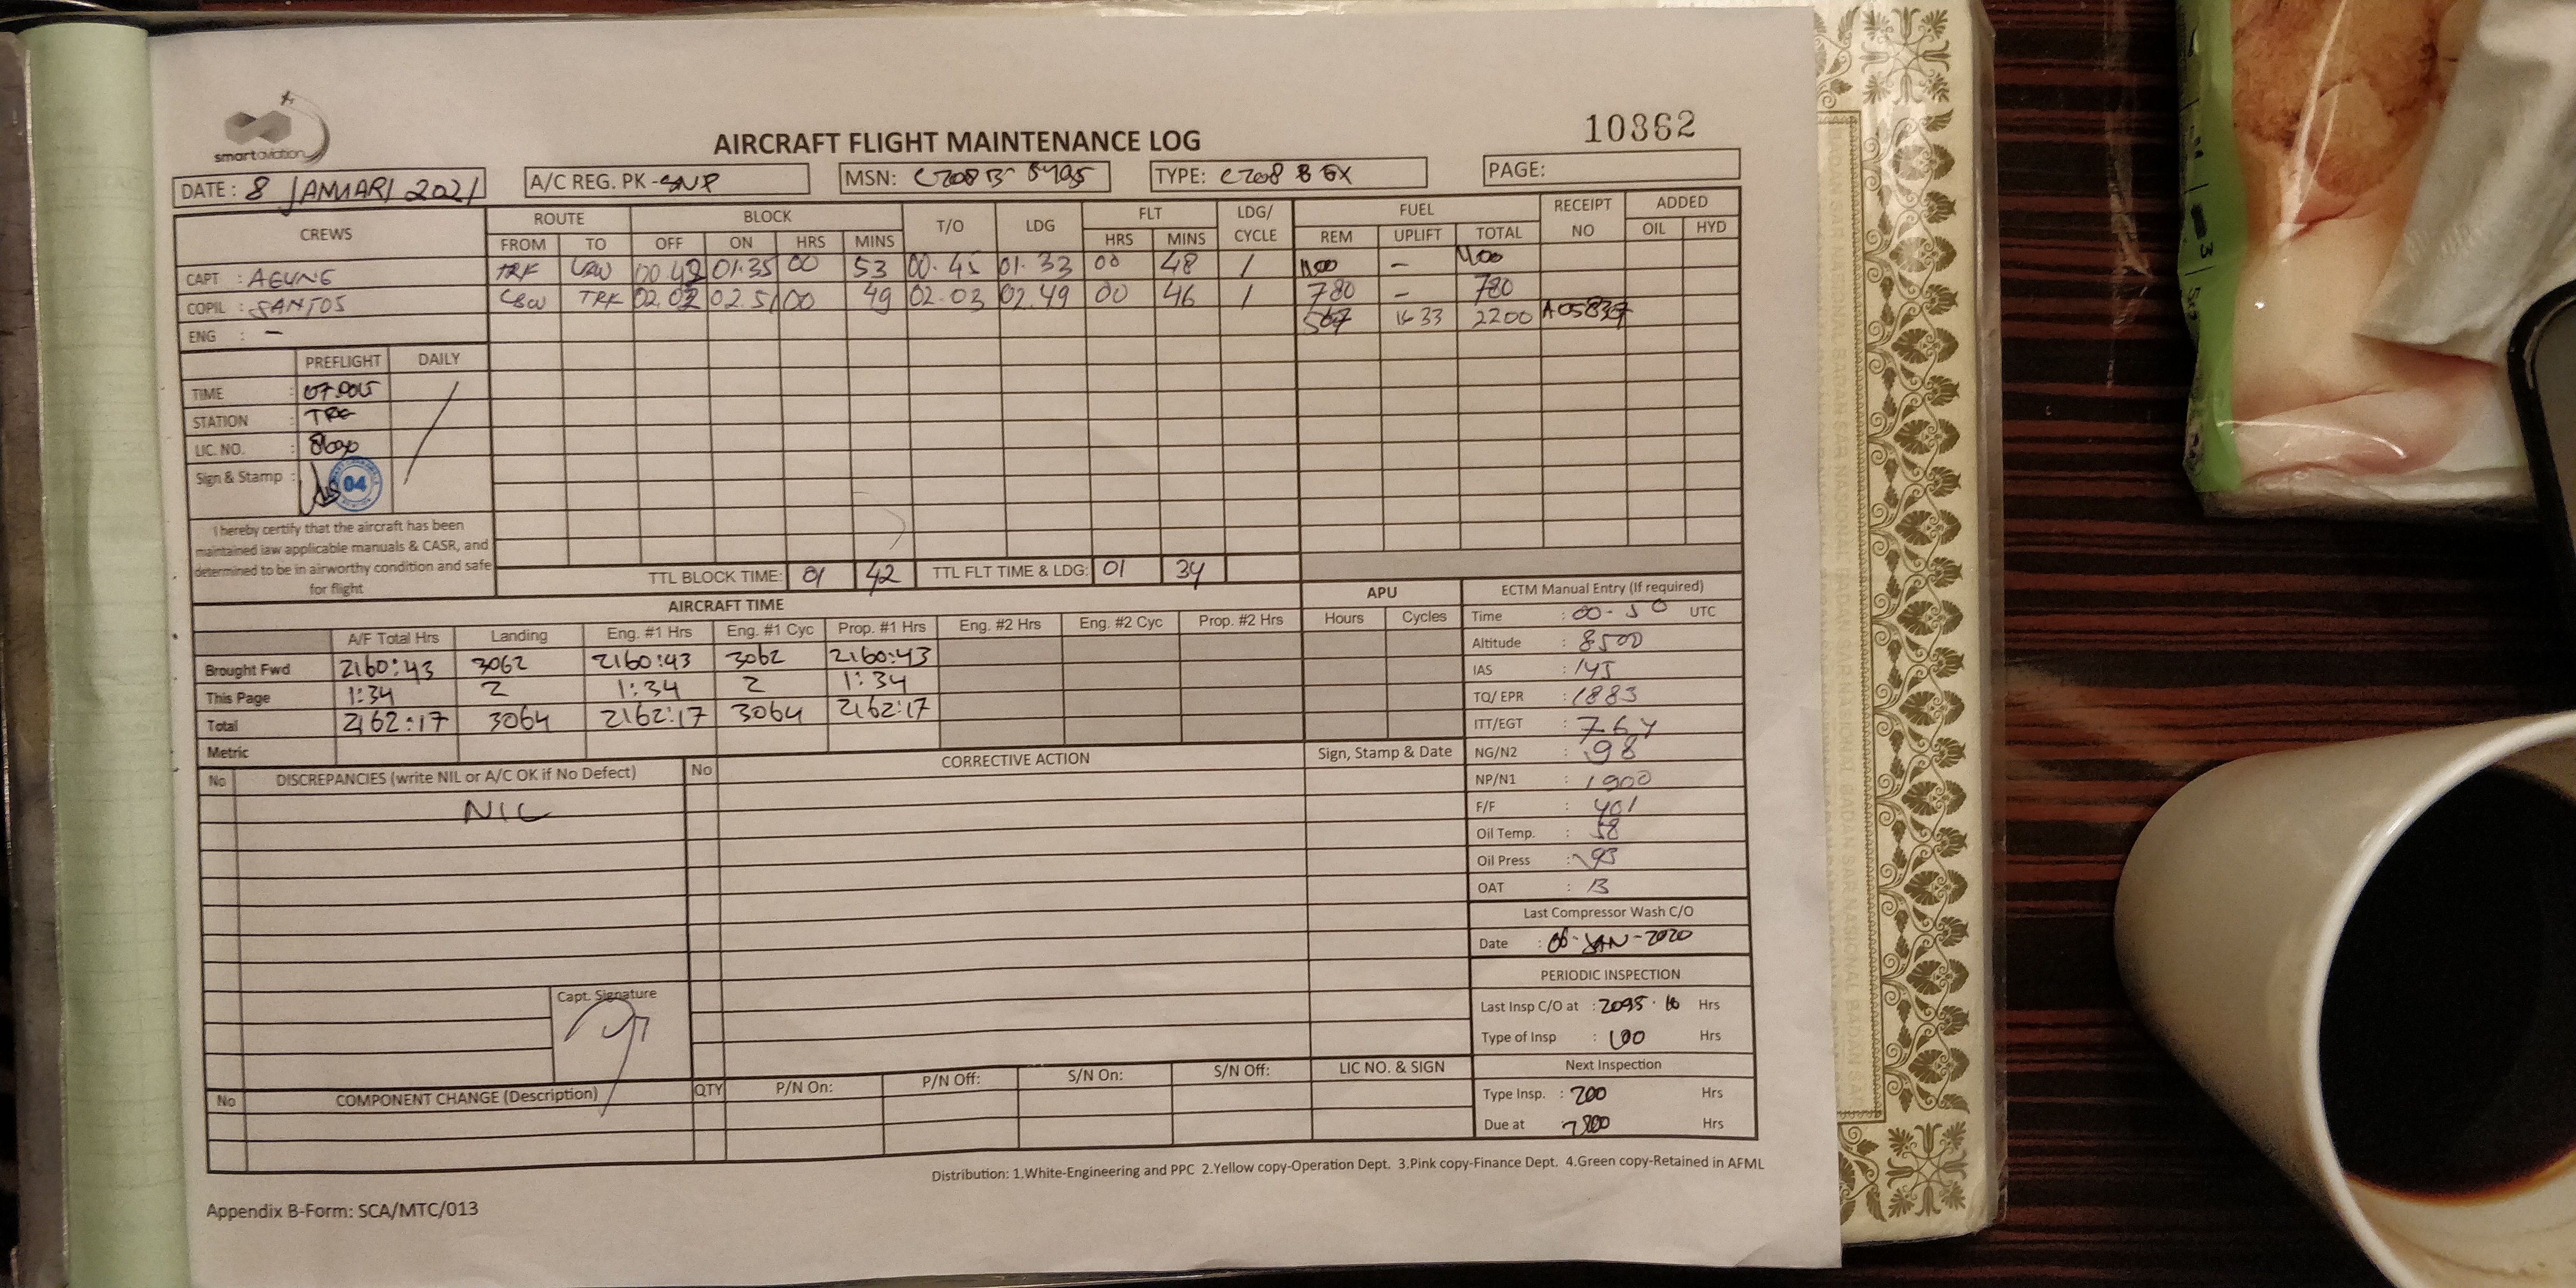 smart aviation
AIRCRAFT FLIGHT MAINTENANCE LOG
10362
DATE : 8 JANUARI 2021 A/C REG. PK - SNP MSN: C208B 5495 TYPE: C208 B EX PAGE:
CREWS ROUTE BLOCK T/O LDG FLT LDG/ CYCLE FUEL RECEIPT NO ADDED
FROM TO OFF ON HRS MINS HRS MINS REM UPLIFT TOTAL OIL HYD
CAPT : AGUNG TRK LBW 00.42 01.35 00 53 00.45 01.33 00 48 1 1100 - 1100
COPIL : SANTOS LBW TRK 02.02 02.51 00 49 02.03 02.49 00 46 1 780 - 780
ENG : - 567 1633 2200
PREFLIGHT DAILY
TIME :
STATION : TRK
LIC. NO. :
Sign & Stamp : 04
I hereby certify that the aircraft has been
maintained iaw applicable manuals & CASR, and
determined to be in airworthy condition and safe
for flight
TTL BLOCK TIME: 01 42 TTL FLT TIME & LDG: 01 34
AIRCRAFT TIME APU
A/F Total Hrs Landing Eng. #1 Hrs Eng. #1 Cyc Prop. #1 Hrs Eng. #2 Hrs Eng. #2 Cyc Prop. #2 Hrs Hours Cycles
Brought Fwd 2160:43 3062 2160:43 3062 2160:43
This Page 1:34 2 1:34 2 1:34
Total 2162:17 3064 2162:17 3064 2162:17
Metric
ECTM Manual Entry (If required)
Time : 00-50 UTC
Altitude : 8500
IAS : 145
TQ/ EPR : 1883
ITT/EGT : 764
NG/N2 : 98
NP/N1 : 1900
F/F : 401
Oil Temp. : 58
Oil Press : 93
OAT : 13
Last Compressor Wash C/O
Date : 06-JAN-2020
PERIODIC INSPECTION
Last Insp C/O at : 2095. Hrs
Type of Insp : 100 Hrs
Next Inspection
Type Insp. : 200 Hrs
Due at Hrs
No DISCREPANCIES (write NIL or A/C OK if No Defect) No CORRECTIVE ACTION Sign, Stamp & Date
NIL
Capt. Signature
No COMPONENT CHANGE (Description) QTY P/N On: P/N Off: S/N On: S/N Off: LIC NO. & SIGN
Distribution: 1.White-Engineering and PPC 2.Yellow copy-Operation Dept. 3.Pink copy-Finance Dept. 4.Green copy-Retained in AFML
Appendix B-Form: SCA/MTC/013